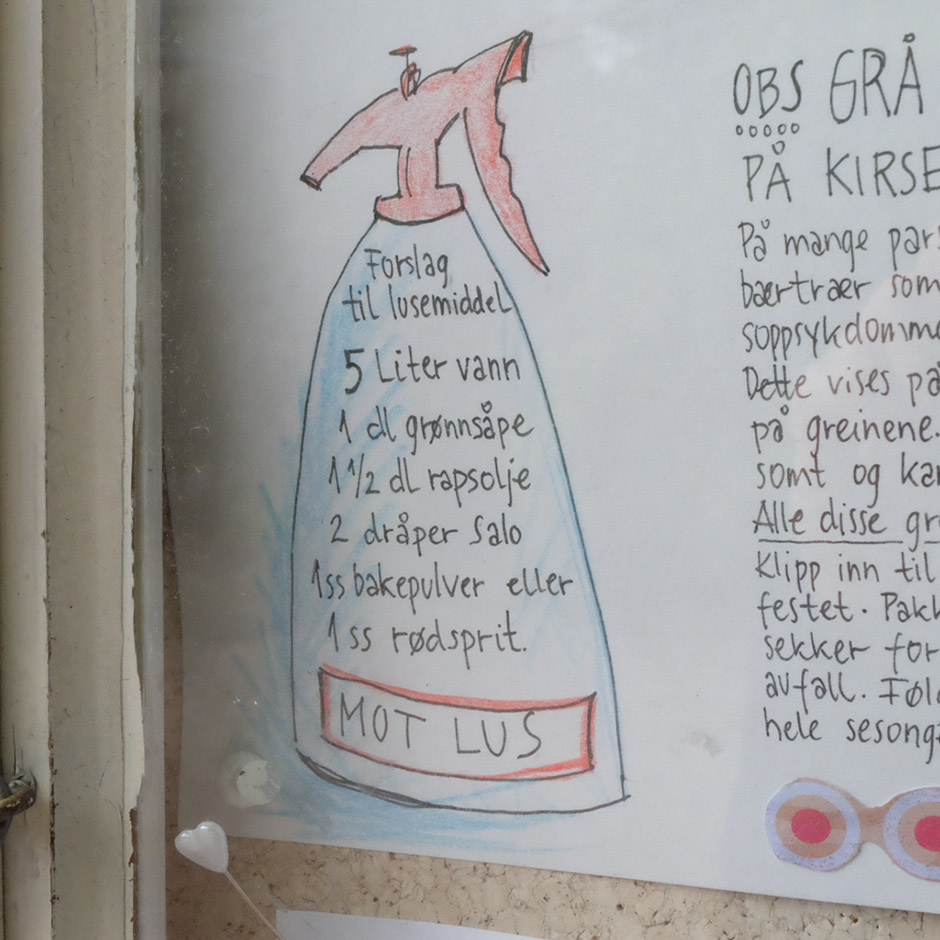 Forslag
til lusemiddel
5 Liter vann
1 dl grønnsåpe
1 1/2 dl rapsolje
2 dråper Salo
1ss bakepulver eller
1 ss rødsprit.
MOT LUS
OBS GRÅ
PÅ KIRSE
På mange pars
bærtrær som
soppsykdomme
Dette vises på
på greinene.
somt og kan
Alle disse gr
Klipp inn til
festet. Pakk
sekker for
avfall. Føl
hele sesong